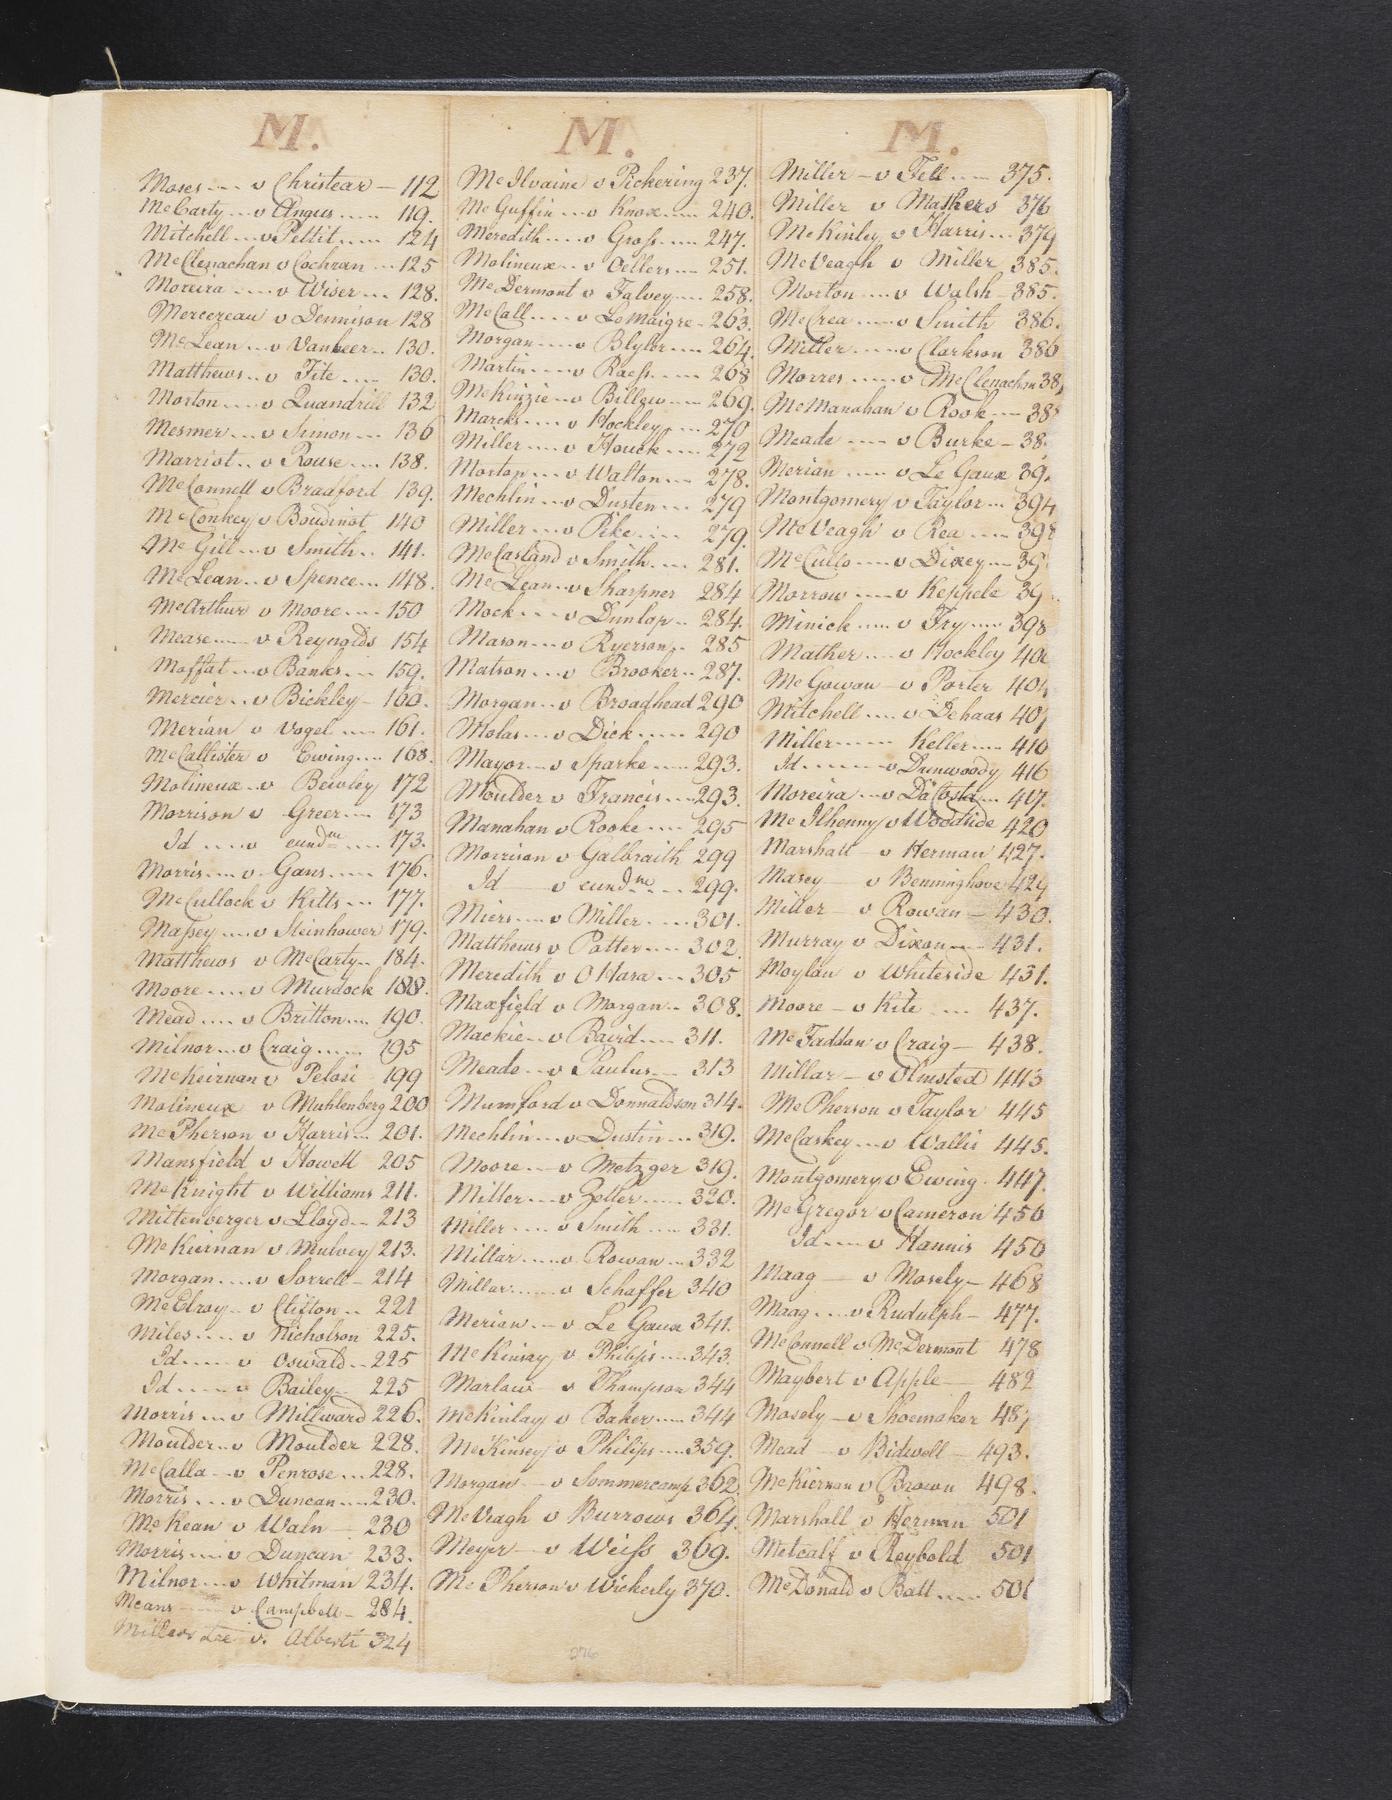 M.
Moses .... v Christear — 112
McCarty ... v Angus ..... 119.
Mitchell ... v Pettit ..... 124
McClenachan v Cochran ... 125
Moreira ..... v Wiser .... 128.
Mercereau v Dennison 128
McLean ... v Vanbeer .. 130.
Matthews .. v Fite ..... 130.
Morton .... v Quandrill 132
Mesmer ... v Simon ... 136
Marriot .. v Rouse .... 138.
McConnell v Bradford 139.
McConkey v Boudinot 140
McGill ... v Smith .. 141.
McLean .. v Spence ... 148.
McArthur v Moore .... 150
Mease .... v Reynolds 154
Moffat ... v Banks ... 159.
Mercier .. v Bickley - 160.
Merian v Vogel .... 161.
McCallister v Ewing .... 168.
Molineux .. v Bewley 172
Morrison v Greer .... 173
Id ..... v eundm ..... 173.
Morris .... v Gans ..... 176.
McCullock v Kitts .... 177.
Massey .... v Steinhower 179.
Matthews v McCarty .. 184.
Moore ..... v Murdock 188.
Mead .... v Britton .... 190.
Milnor ... v Craig ...... 195
McKeirnan v Pelosi 199
Molineux v Muhlenberg 200
McPherson v Harris ... 201.
Mansfield v Howell 205
McKnight v Williams 211.
Mittenberger v Lloyd ... 213
McKiernan v Mulvey 213.
Morgan .... v Sorrell - 214
McElroy .. v Clifton .. 221
Miles ..... v Nicholson 225.
Id ..... v Oswald .. 225
Id ..... v Bailey .. 225
Morris ... v Millward 226.
Moulder .. v Moulder 228.
McCalla .. v Penrose ... 228.
Morris .... v Duncan .... 230.
McKean v Waln 230
Morris .... v Duncan 233.
Milnor ... v Whitman 234.
Means ..... v Campbell - 284.
Miller v. Alberti 324
M.
McIlvaine v Pickering 237.
McGuffin ... v Knox .... 240.
Meredith .... v Gross .... 247.
Molineux .. v Oellers .... 251.
McDermont v Falvey .... 258.
McCall .... v LeMaigre - 263.
Morgan .... v Blyler .... 264.
Martin .... v Raess ...... 268
McKinzie .. v Billew .... 269.
Marcks .... v Hockley .... 270
Miller .... v Houck .... 272
Morton .... v Walton .... 278.
Mechlin ... v Dusten .... 279
Miller .... v Pike .... 279.
McCasland v Smith .... 281.
McLean ... v Sharpner 284
Mock .... v Dunlap .. 284.
Mason .... v Ryerson .. 285
Matson .... v Brooker .. 287.
Morgan .. v Broadhead 290
Molas .... v Dick ...... 290
Mayor ... v Sparke ..... 293.
Moulder v Francis .... 293.
Manahan v Rooke ..... 295
Morrison v Galbraith 299
Id v eundme .... 299.
Miers .... v Miller ..... 301.
Matthews v Potter .... 302.
Meredith v O Hara .... 305
Maxfield v Morgan .. 308.
Mackie .. v Baird ..... 311.
Meade .. v Paulus .... 313
Mumford v Donnaldson 314.
Mechlin .... v Dustin ... 319.
Moore .... v Metzger 319.
Miller .... v Zeller ..... 320.
Miller .... v Smith ..... 331.
Millar ..... v Rowan ... 332
Millar ...... v Schaffer 340
Merian ... v Le Gaux 341.
McKinsay v Philips .... 343.
Marlow v Thompson 344
McKinlay v Baker .... 344
McKinsey v Philips .... 359.
Morgan v Sommercamp 362.
McVeagh v Burrows 364.
Meyer v Weiss 369.
McPherson v Wickerly 370.
M.
Miller — v Fell ..... 375.
Miller v Mathers 376
McKinley v Harris .... 379
McVeagh v Miller 385.
Morton .... v Walsh - 385.
McCrea .... v Smith 386.
Miller ..... v Clarkson 386
Morres ..... v McClenachan 38
McManahan v Rook .... 38
Meade .... v Burke - 38
Merian .... v Le Gaux 39
Montgomery v Taylor ... 394
McVeagh v Rea ..... 398
McCullo .... v Dixey ... 39
Morrow .... v Keppele 39
Minick .... v Fry .... 398
Mather .... v Hockley 40
McGowan v Porter 40
Mitchell .... v Dehaas 40
Miller ...... Keller .... 410
Id ....... v Dunwoody 416
Moreira ... v DaCosta ... 417.
McIlhenny v Woodside 420
Marshall v Herman 427.
Masey v Benninghove 429
Miller v Rowan — 430.
Murray v Dixon .... 431.
Moylan v Whiteside 431.
Moore - v Kite .... 437.
McFaddan v Craig — 438.
Millar — v Olmsted 443
McPherson v Taylor 445
McCaskey ... v Wallis 445.
Montgomery v Ewing . 447.
McGregor v Cameron 450
Id .... v Hannis 450
Maag v Mosely - 468
Maag .... v Rudulph - 477.
McConnell v McDermont 478
Maybert v Apple — 482
Mosely - v Shoemaker 487
Mead v Bidwell - 493.
McKiernan v Brown 498.
Marshall v Herman 501
Metcalf v Reybold 501
McDonald v Ball ..... 501
276